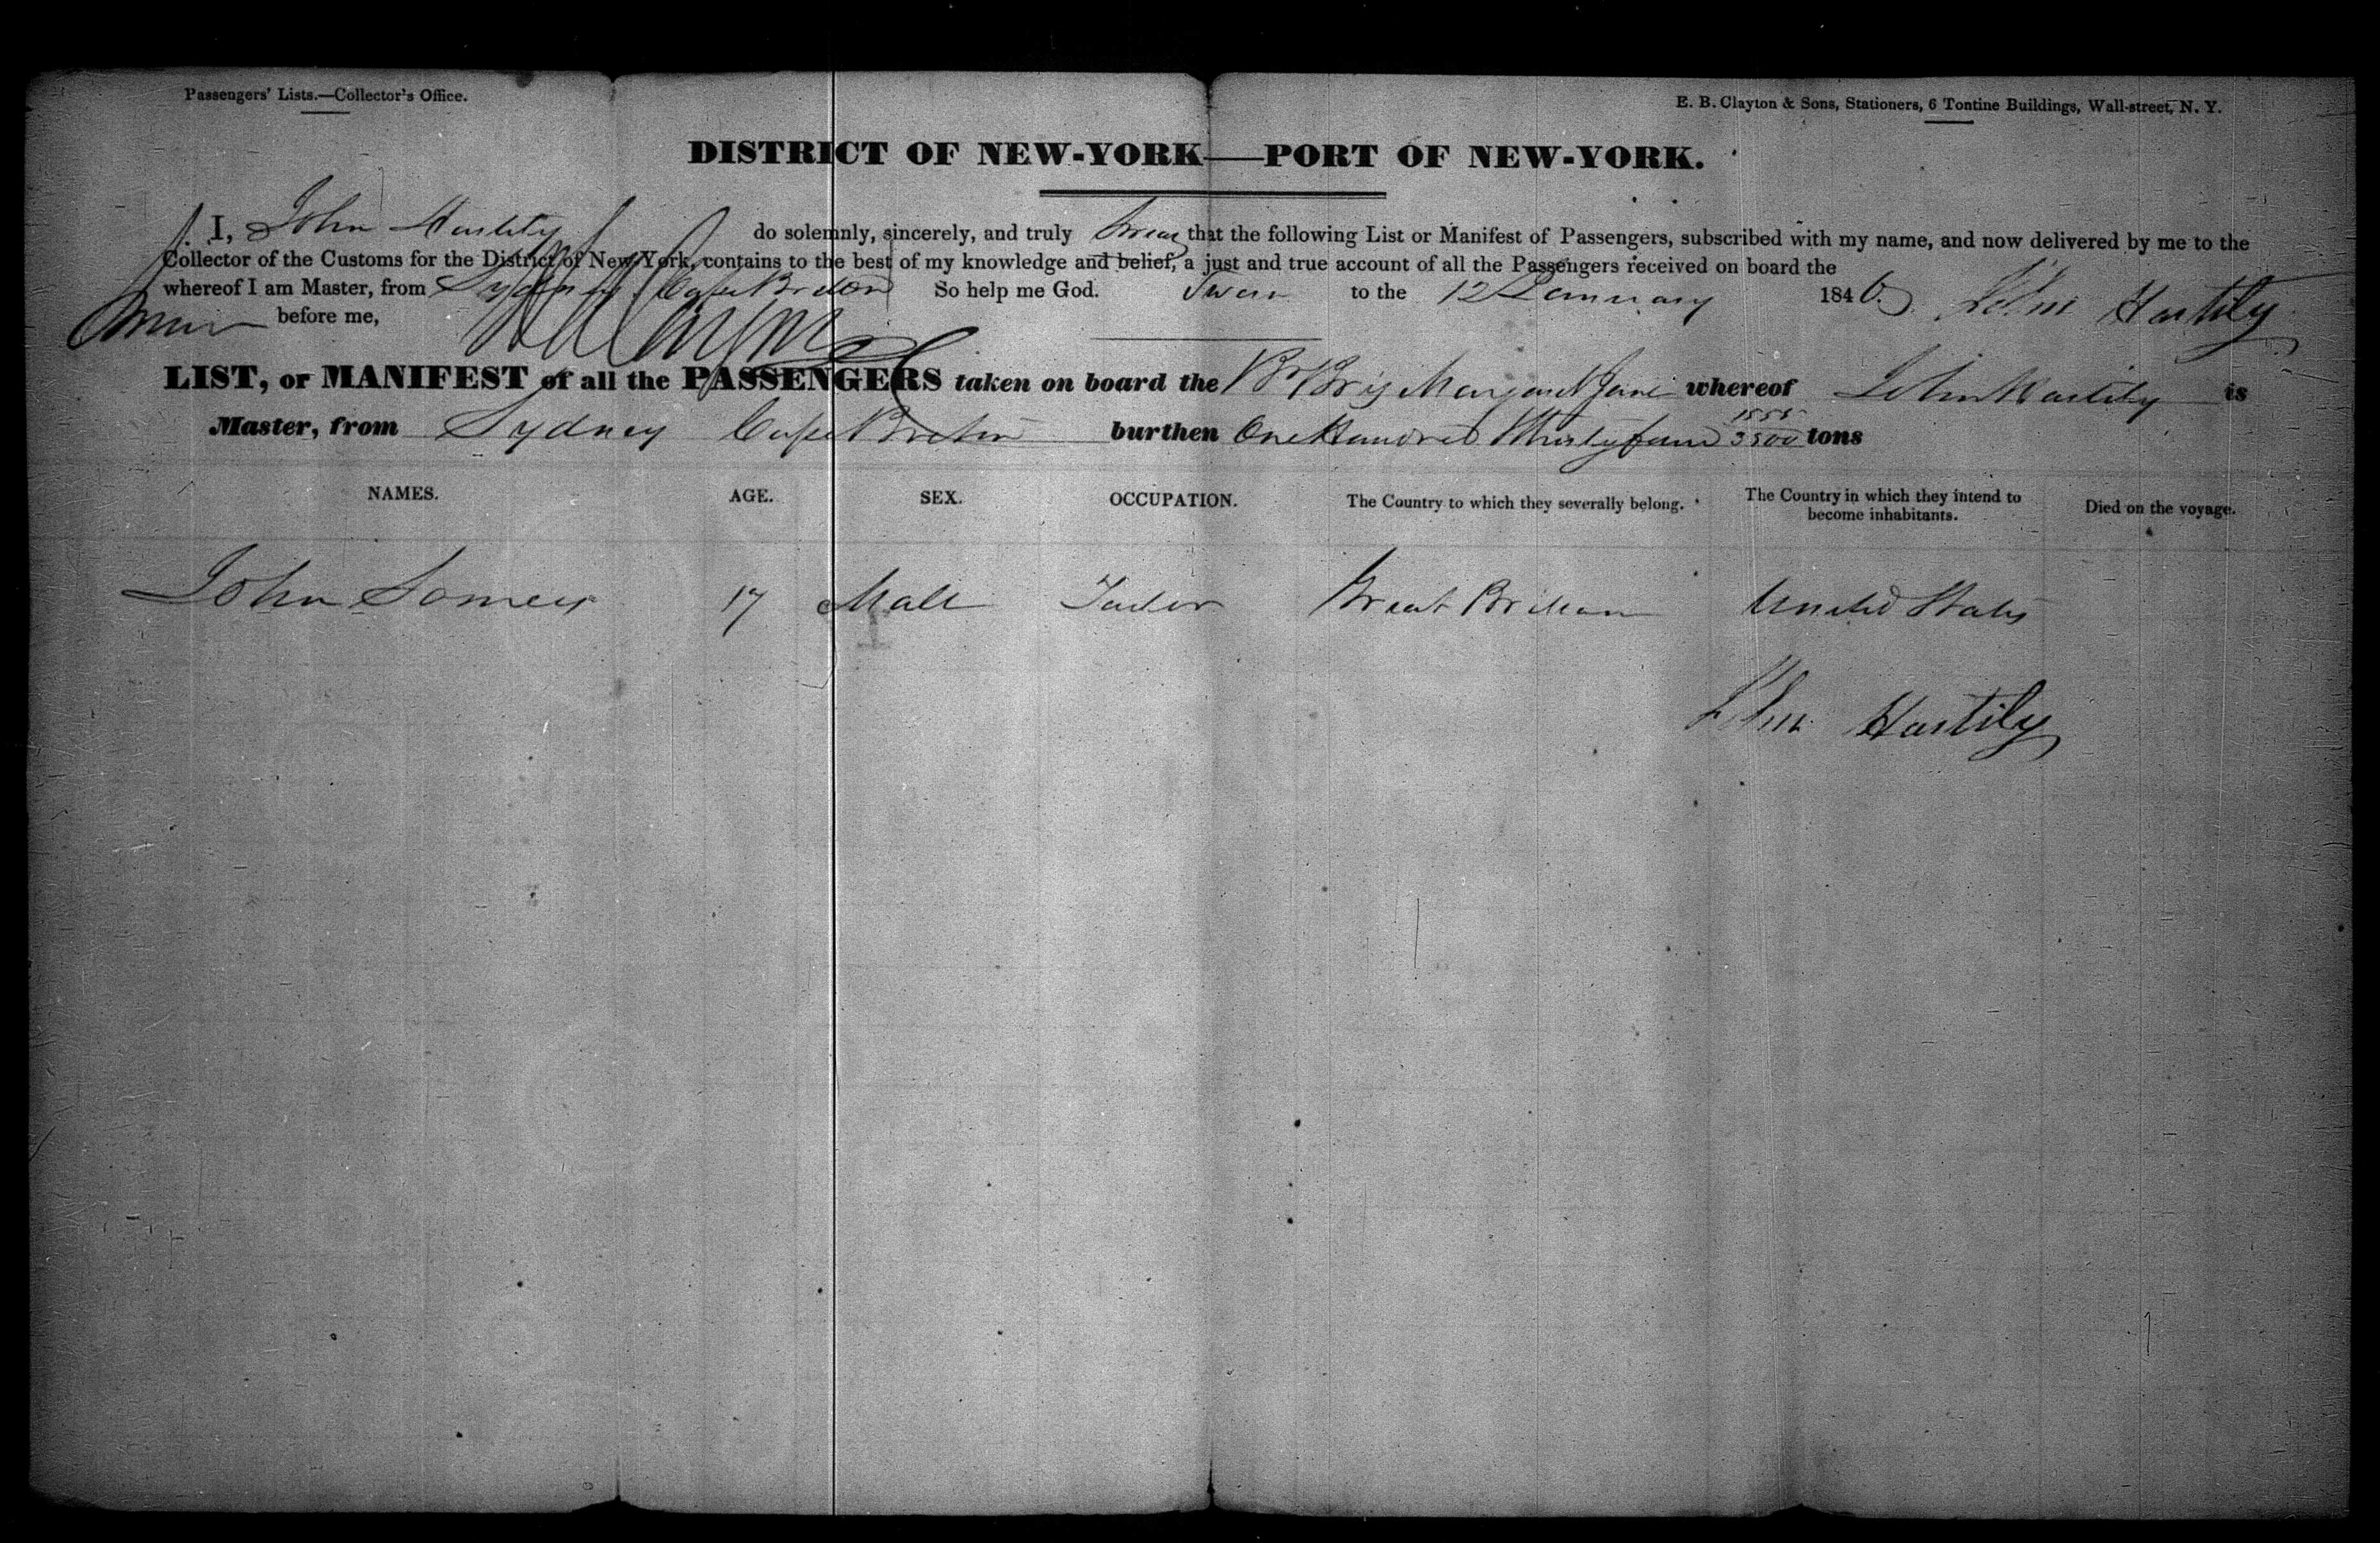 Passengers' Lists.—Collector's Office.
E. B. Clayton & Sons, Stationers, 6 Tontine Buildings, Wall-street, N. Y.
DISTRICT OF NEW-YORK—PORT OF NEW-YORK.
I, John Hartily do solemnly, sincerely, and truly Swear that the following List or Manifest of Passengers, subscribed with my name, and now delivered by me to the
Collector of the Customs for the District of New York, contains to the best of my knowledge and belief, a just and true account of all the Passengers received on board the
whereof I am Master, from Sydney Cape Breton So help me God. Sworn to the 12 January 1846. John Hartily
Sworn before me,
LIST, or MANIFEST of all the PASSENGERS taken on board the Br Brig Margaret Jane whereof John Hartily is
Master, from Sydney Cape Breton burthen One Hundred Thirty four 3500 tons
NAMES. AGE. SEX. OCCUPATION. The Country to which they severally belong. The Country in which they intend to become inhabitants. Died on the voyage.
John Somers 17 Male Great Britain United States
John Hartily